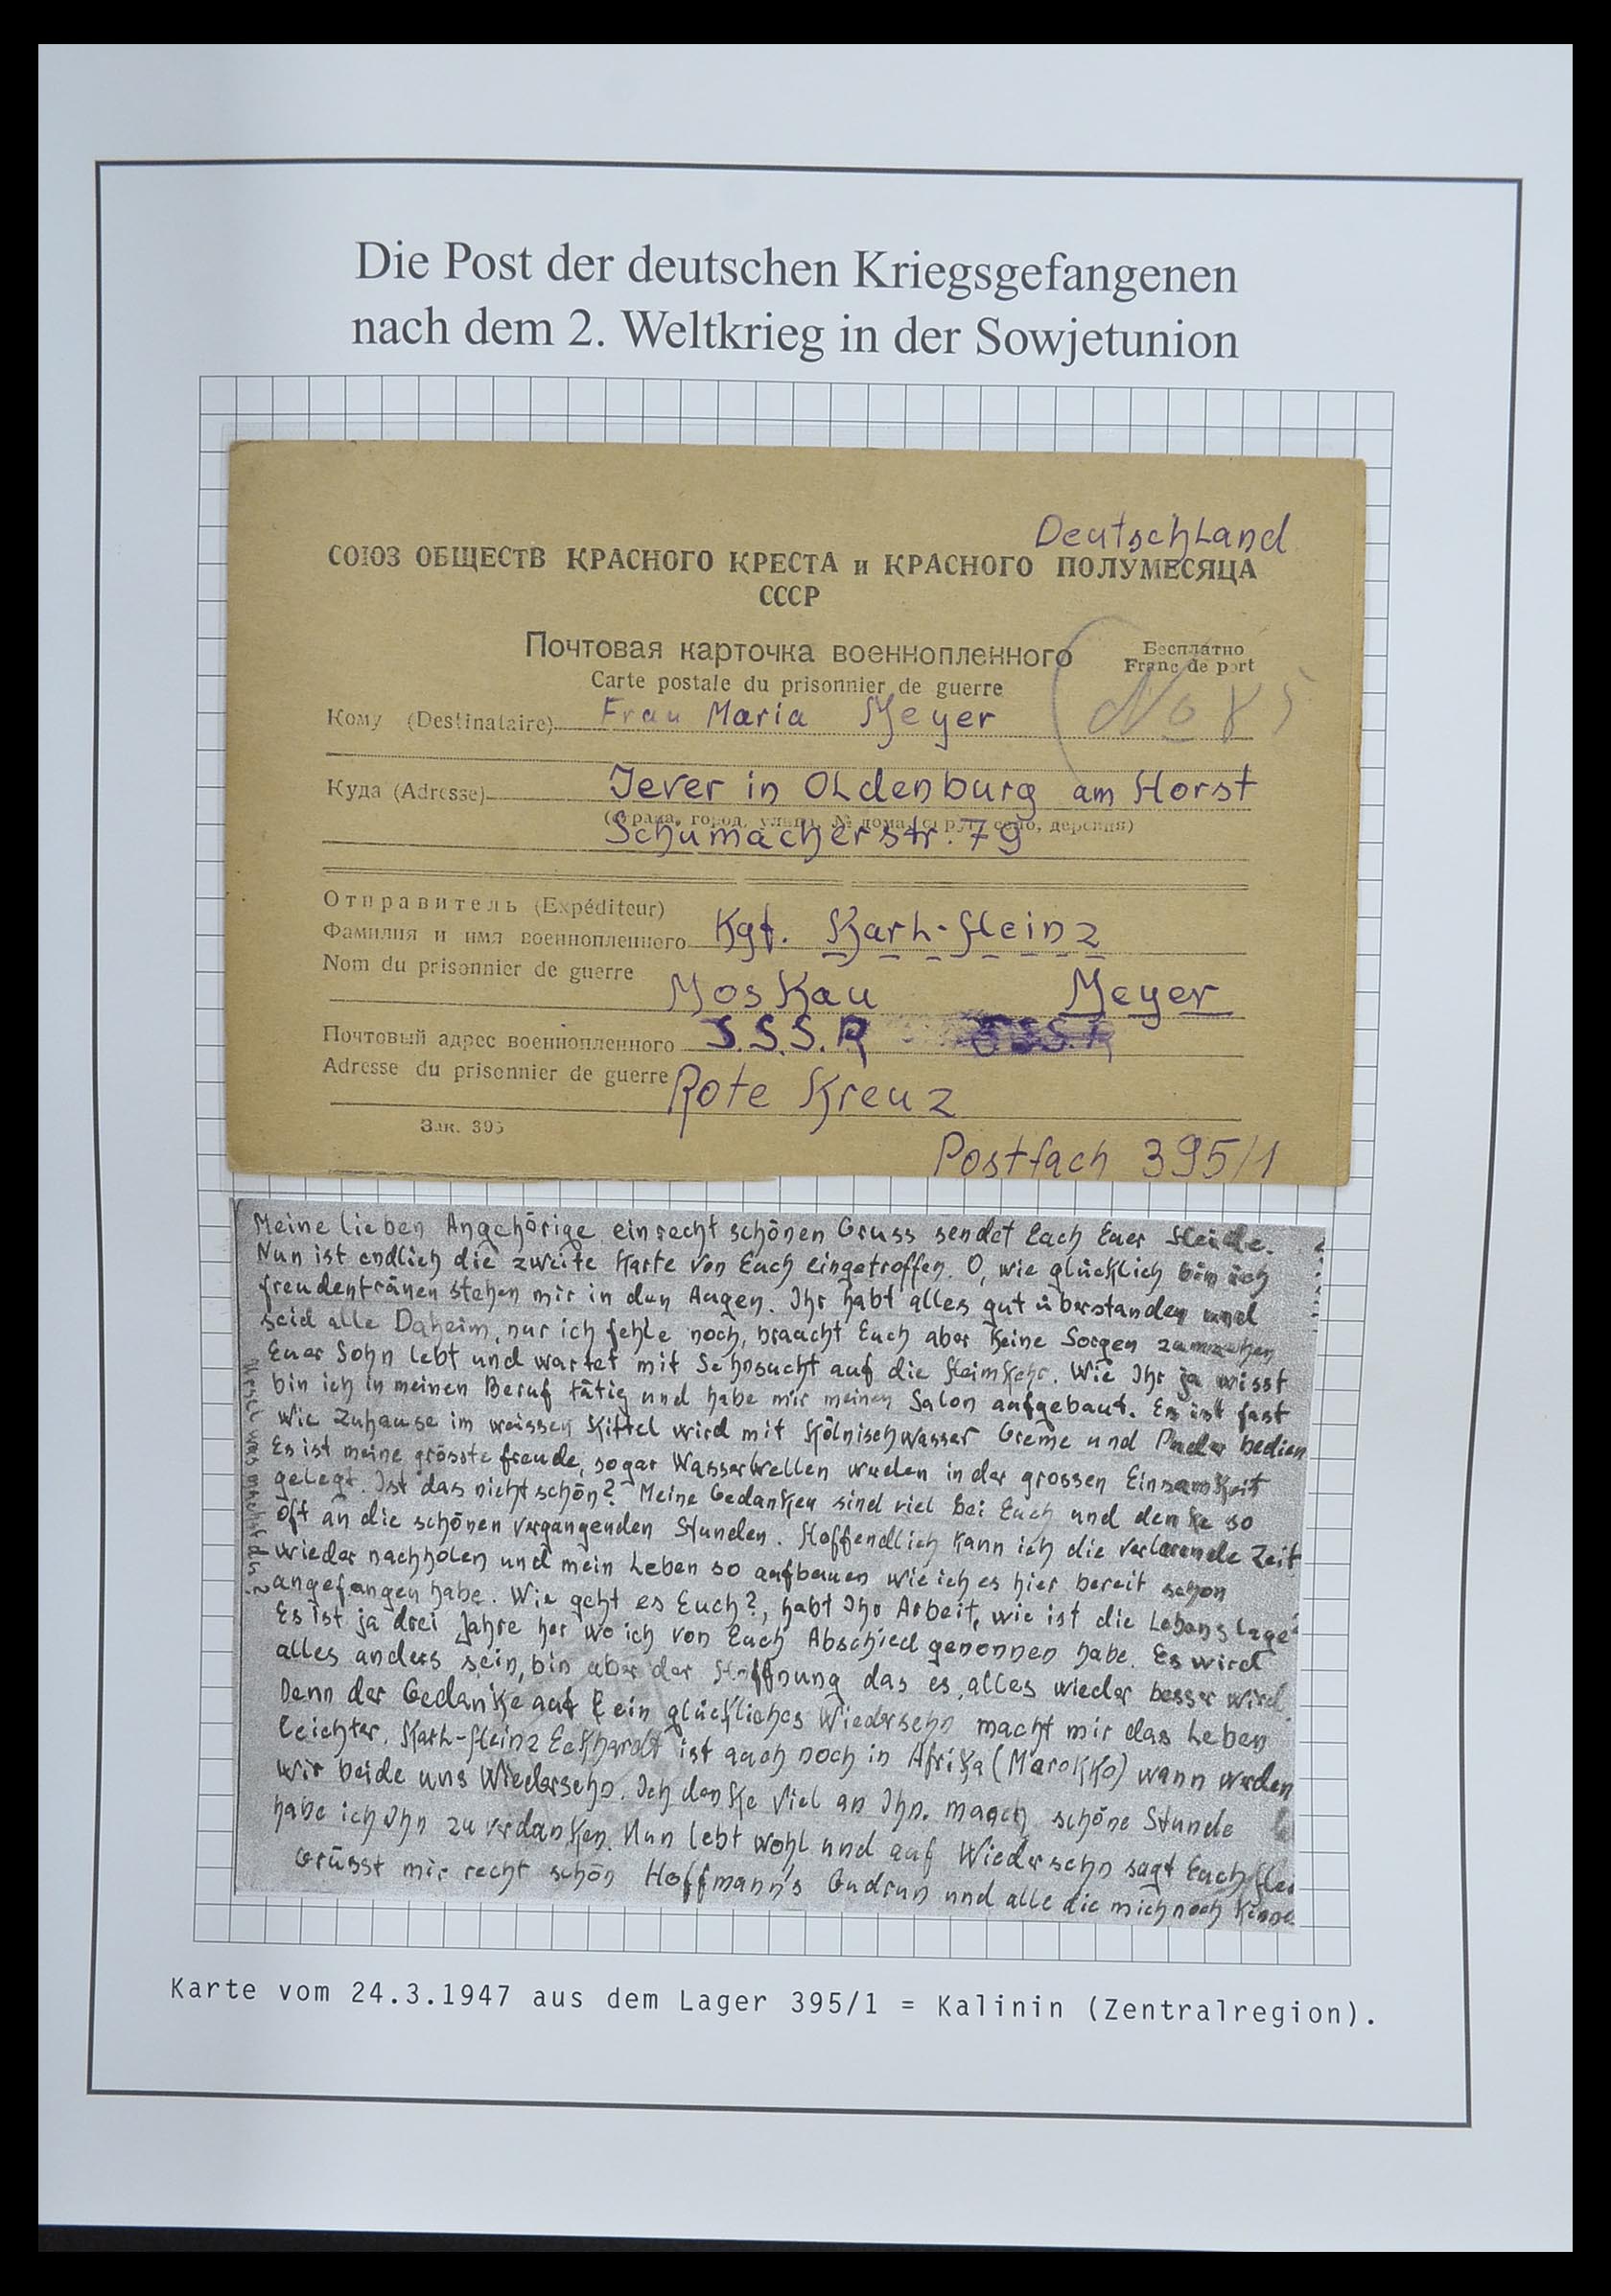 Die Post der deutschen Kriegsgefangenen
nach dem 2. Weltkrieg in der Sowjetunion
Deutschland
СОЮЗ ОБЩЕСТВ КРАСНОГО КРЕСТА и КРАСНОГО ПОЛУМЕСЯЦА
СССР
Почтовая карточка военнопленного
Бесплатно
Franc de port
Carte postale du prisonnier de guerre
No 85
Кому (Destinataire) Frau Maria Meyer
Куда (Adresse) Jever in Oldenburg am Horst
(страна, город, улица, № дома, округ, село, деревня)
Schumacherstr. 79
Отправитель (Expéditeur)
Фамилия и имя военнопленного Kgf. Karh-Heinz
Nom du prisonnier de guerre
Moskau Meyer
Почтовый адрес военнопленного S.S.S.R SSS.R
Adresse du prisonnier de guerre Rote Kreuz
Зак. 395
Postfach 395/1
Meine lieben Angehörige ein recht schönen Gruss sendet Euch Euer Heide.
Nun ist endlich die zweite Karte von Euch eingetroffen. O, wie glücklich bin ich
freudentränen stehen mir in den Augen. Ihr habt alles gut überstanden und
seid alle Daheim, nur ich fehle noch, braucht Euch aber keine Sorgen zumachen
Euer Sohn lebt und wartet mit Sehnsucht auf die Heimkehr. Wie Ihr ja wisst
bin ich in meinen Beruf tätig und habe mir meinen Salon aufgebaut. Es ist fast
wie Zuhause im weissen Kittel wird mit Kölnischwasser Creme und Puder bedien
Es ist meine grösste freude, sogar Wasserwellen wurden in der grossen Einsamkeit
gelegt. Ist das nicht schön? Meine Gedanken sind viel bei Euch und denke so
oft an die schönen vergangenden Stunden. Hoffendlich kann ich die verlorende Zeit
wieder nachholen und mein Leben so aufbauen wie ich es hier bereit schon
angefangen habe. Wie geht es Euch?, habt Ihr Arbeit, wie ist die Lebenslage?
Es ist ja drei Jahre her wo ich von Euch Abschied genonnen habe. Es wird
alles anders sein, bin aber der Hoffnung das es alles wieder besser wird.
Denn der Gedanke auf ein glückliches Wiedersehn macht mir das Leben
leichter. Karh-Heinz Eckhardt ist auch noch in Afrika (Marokko) wann werden
wir beide uns Wiedersehn. Ich denke viel an Ihn. manch schöne Stunde
habe ich Ihn zu verdanken. Nun lebt wohl und auf Wiedersehn sagt Euch Hei
Grüsst mir recht schön Hoffmann's Gudrun und alle die mich noch kenne
was machst du?
Karte vom 24.3.1947 aus dem Lager 395/1 = Kalinin (Zentralregion).